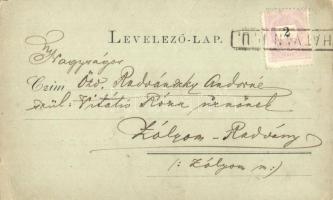 LEVELEZŐ-LAP.
2
HATVAN
Nagyságos
Czim: Özv. Radvánszky Andorné
szül: Vitális Róza úrnőnek
Zólyom-Radvány
(: Zólyom m:)